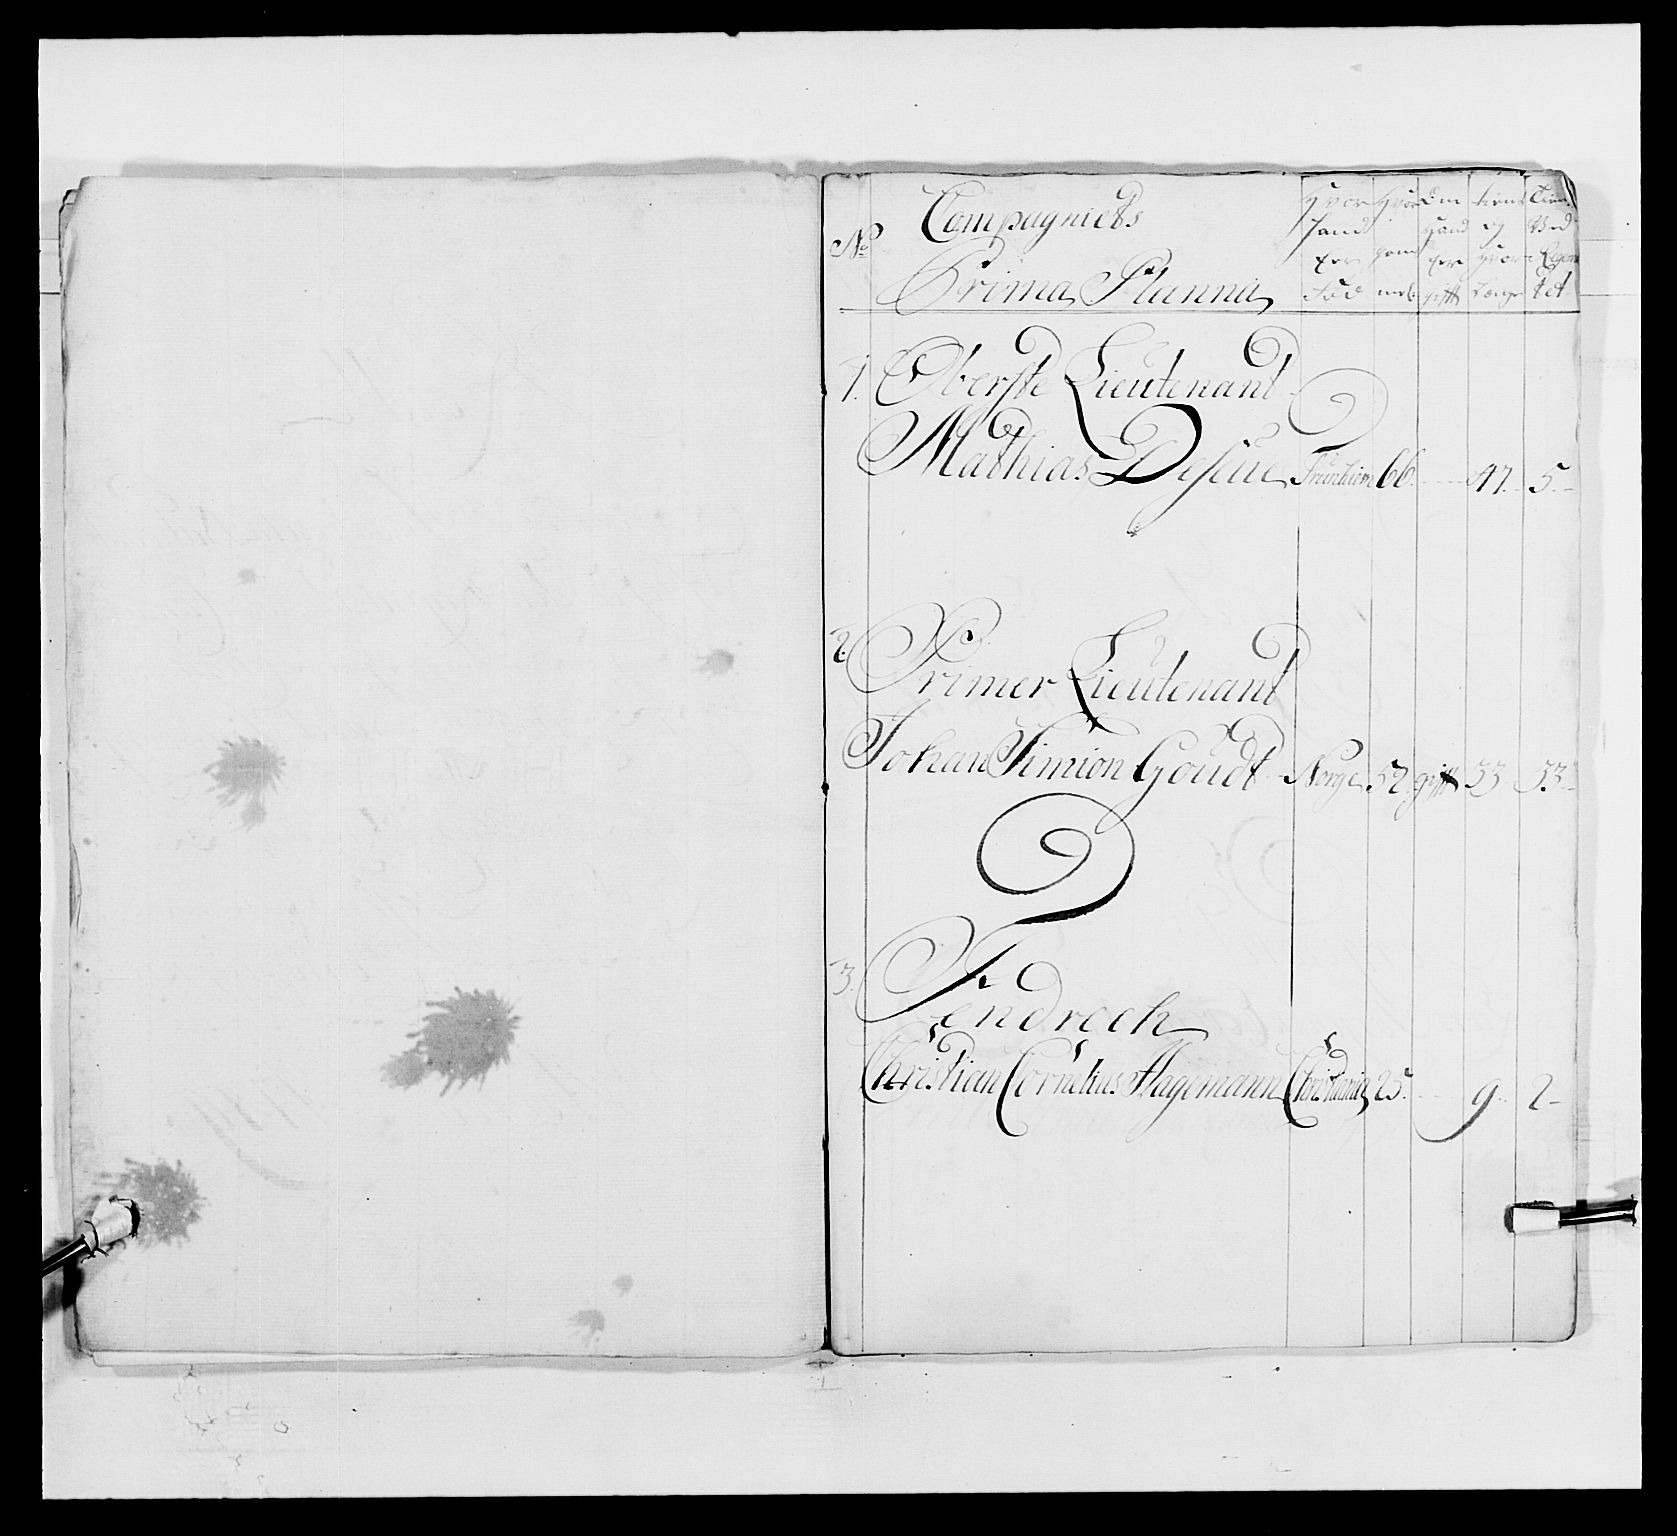 No
Compagniets
Prima Planna
Hvor
hand
er
Hvor
Om
hand
er
gifft
og
Hvor
Længe
Tient
Ved
tet
1. Oberste Lieutenant
Mathias Deseue Trunhiem 66. 47. 5.
2. Primer Lieutenant
Johan Simion Goudt Norge 52. gifft 33 33
3. Fendrech
Christian Cornelius Hagemann Christiania 25. 9. 2